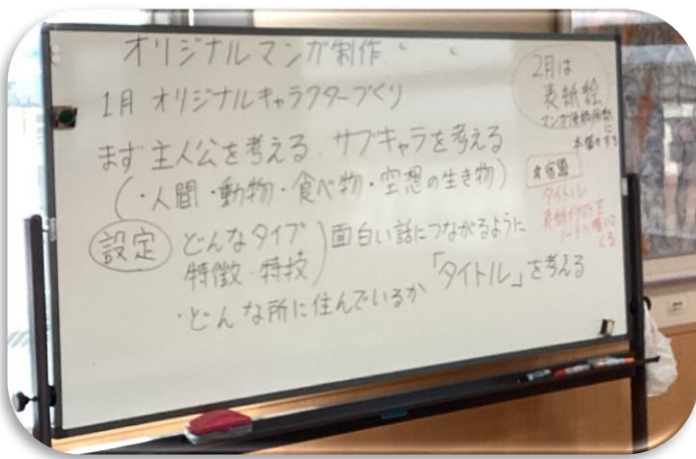 オリジナルマンガ制作
1月 オリジナルキャラクターづくり
まず主人公を考える、サブキャラを考える
(・人間・動物・食べ物・空想の生き物)
設定 どんなタイプ
特徴・特技
)面白い話につながるように
・どんな所に住んでいるか 「タイトル」を考える
2月は
表紙絵
マンガ
に
本番をする
宿題
タイトル
表紙イラストを
ノートに描いて
くる